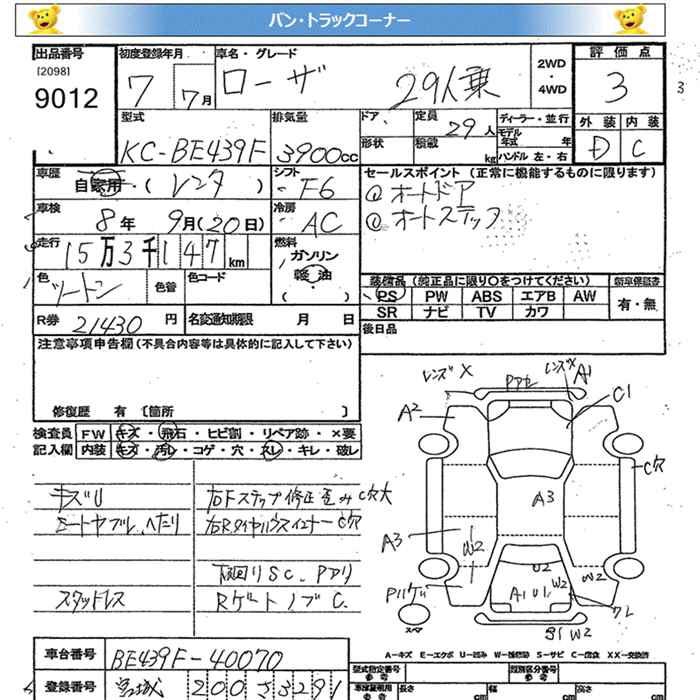 バン・トラックコーナー
出品番号 初度登録年月 車名・グレード 2WD・4WD 評価点
[2098] 9012 7 7月 ローザ 29人乗 3 3
型式 排気量 ドア 定員 29人 ディーラー・並行 外装 内装
KC-BE439F 3900cc 形状 積載 kg モデル年式 年 ハンドル 左・右 D C
車歴 自家用・( レンタ ) シフト F6 セールスポイント (正常に機能するものに限ります)
車検 8年 9月(20日) 冷房 AC ◎オートドア
◎オートステップ
走行 15万3千147km 燃料 ガソリン・軽油・( )
色 ツートン 色替 色コード 装備品 (純正品に限り○をつけてください) 新車保証書
PS PW ABS エアB AW 有・無
SR ナビ TV カワ
R券 21430円 名変通知期限 月 日 後日品
注意事項申告欄 (不具合内容等は具体的に記入して下さい)
修復歴 有 [箇所 ]
検査員 FW キズ・飛石・ヒビ割・リペア跡・×要
記入欄 内装 キズ・汚レ・コゲ・穴・スレ・キレ・破レ
キズU 右Fステップ修正歪みC穴大
シートヤブレ、ヘたり 右RタイヤハウスインナーC穴
下回りSC、Pアリ
スタッドレス RゲートノブC.
レンズX レンズX A1
A2 C1
C穴
A3
A3 W2
U2
A1 U1 W2 W2
スペア S1 W2
A-キズ E-エクボ U-凹み W-補修跡 S-サビ C-腐食 XX-交換済
車台番号 BE439F-40070 型式指定番号 類別区分番号
登録番号 宮城 200 さ 3291 長さ cm 幅 cm 高さ cm